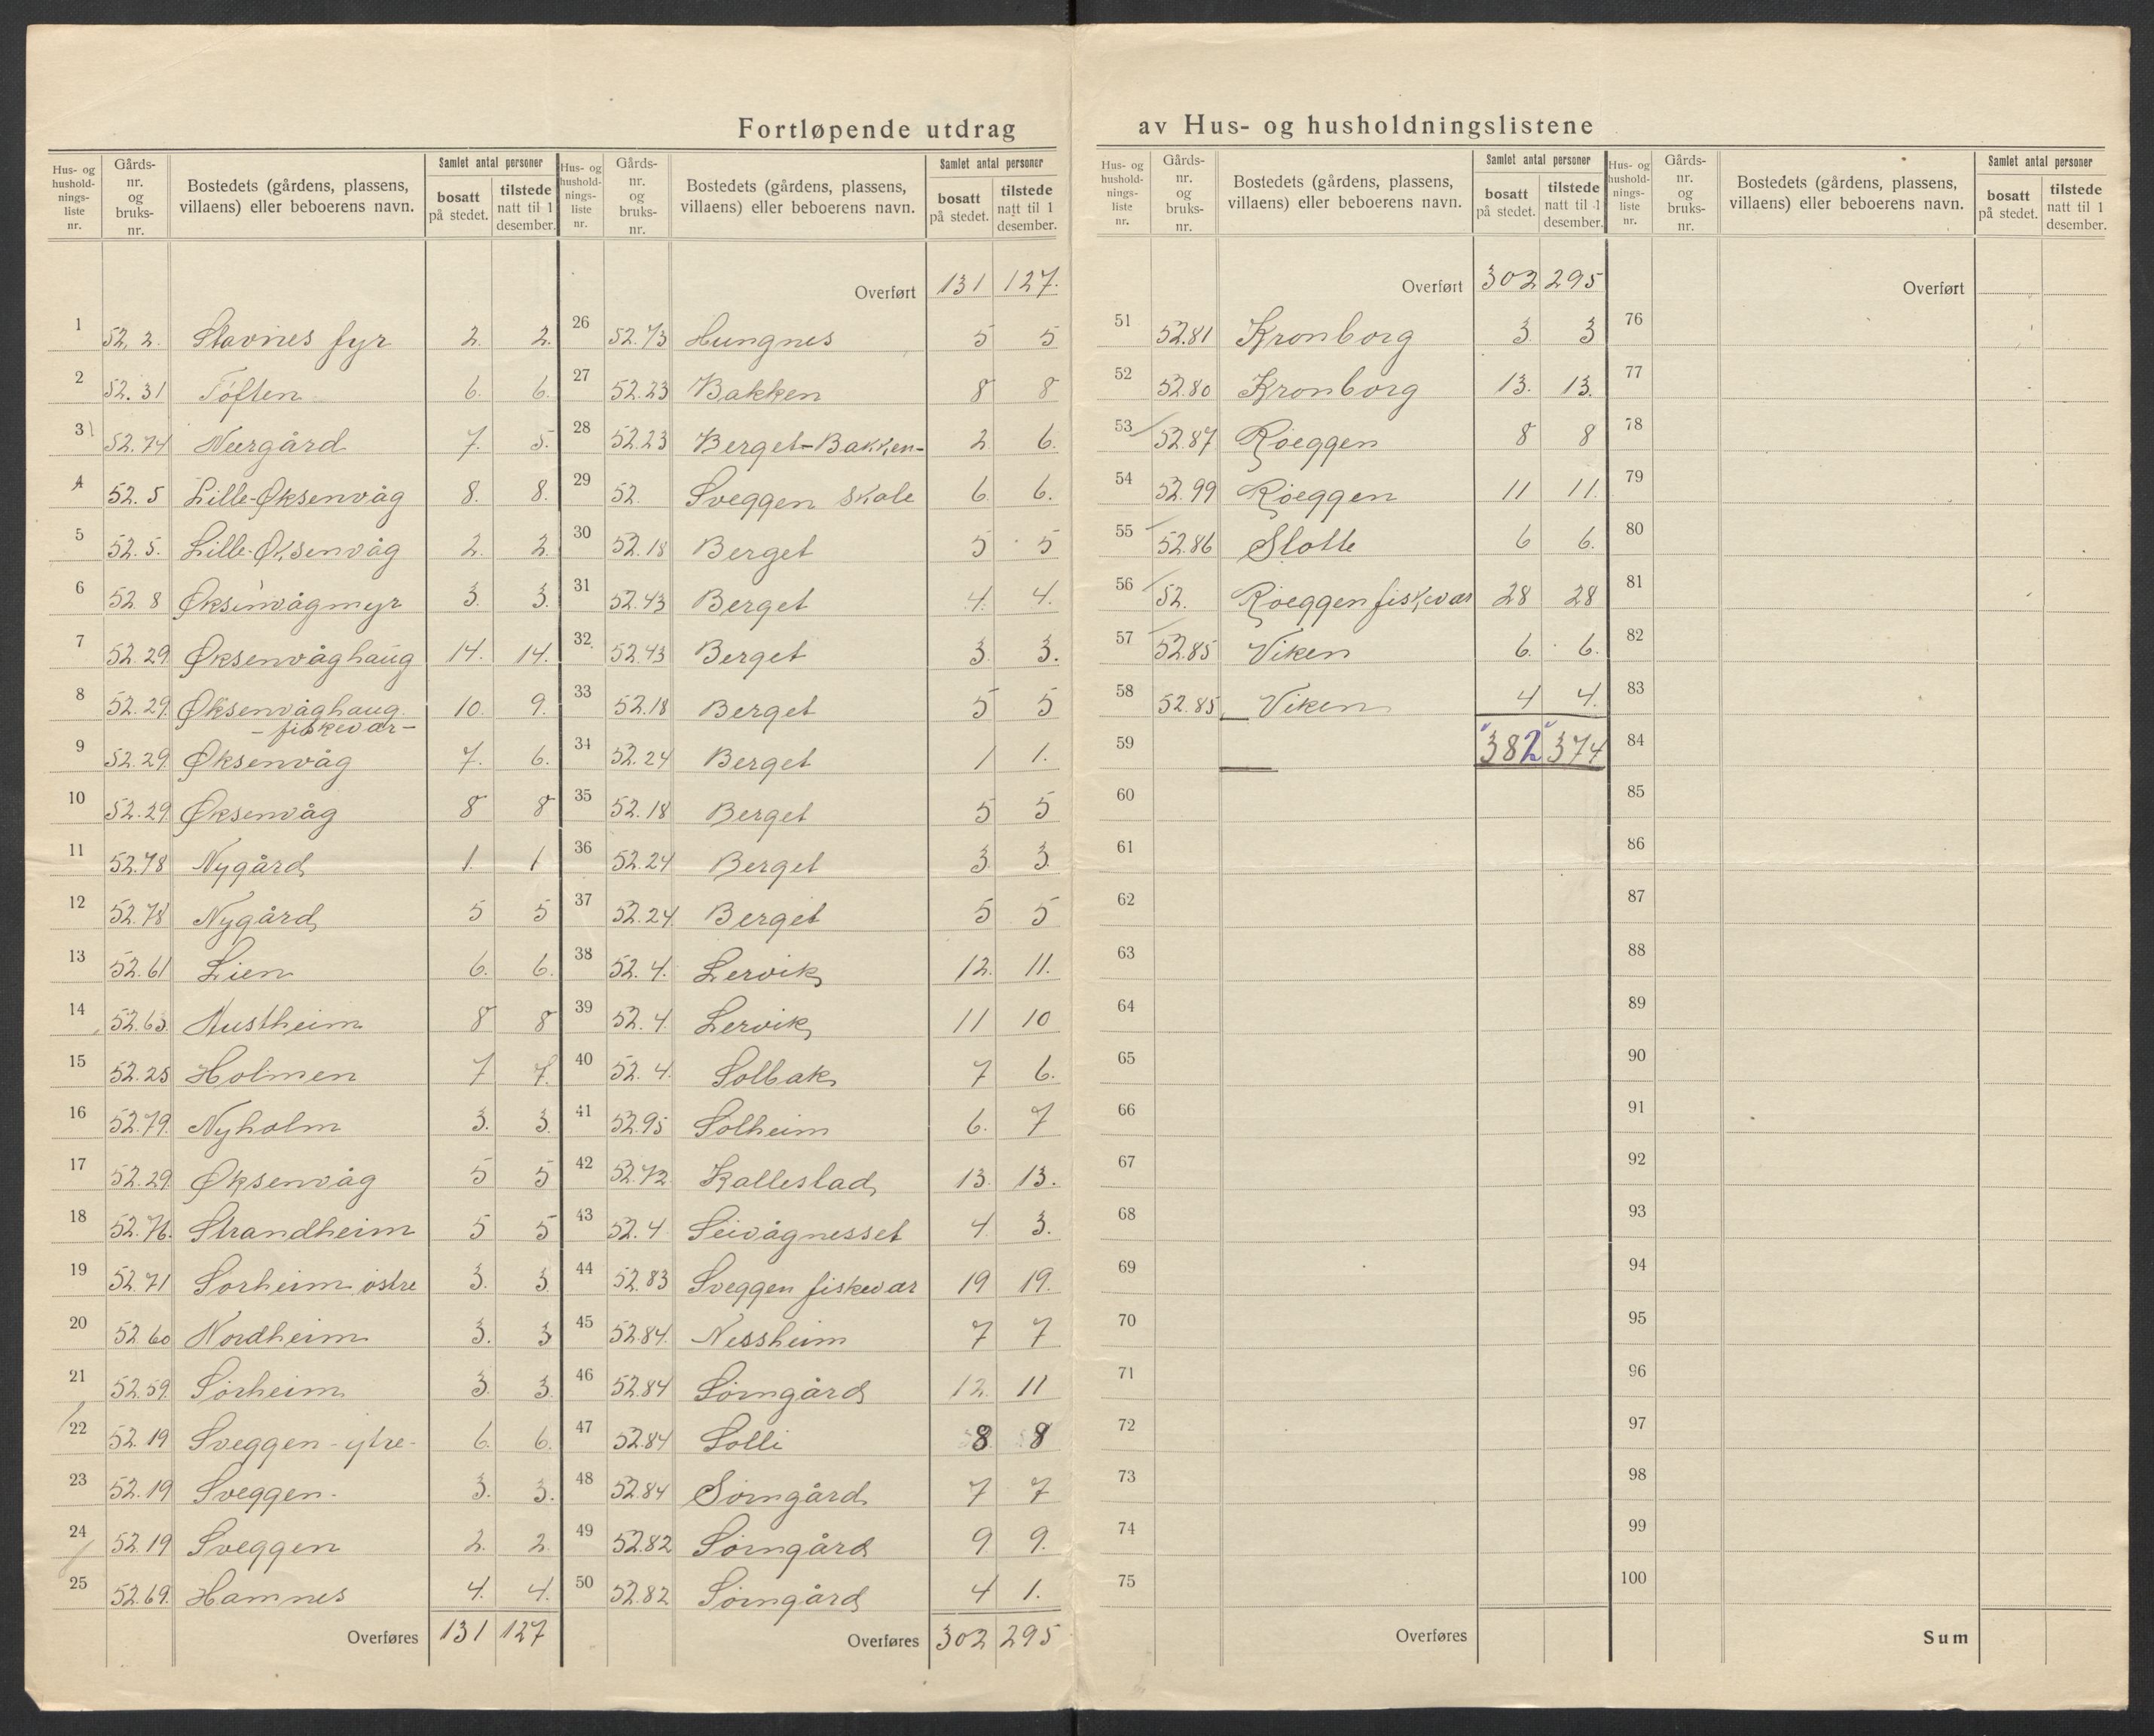 Fortløpende utdrag av Hus- og husholdningslistene
Hus- og hushold-nings-liste nr. | Gårds-nr. og bruks-nr. | Bostedets (gårdens, plassens, villaens) eller beboerens navn. | Samlet antal personer | bosatt på stedet. | tilstede natt til 1 desember.
1 52, 2. Stavnes fyr 2. 2.
2 52. 31 Tøften 6. 6.
3 52. 74 Neergård 7. 5.
4 52. 5 Lille-Øksenvåg 8. 8.
5 52. 5. Lille-Øksenvåg 2. 2.
6 52. 8 Øksenvågmyr 3. 3.
7 52. 29 Øksenvåghaug 14. 14.
8 52. 29. Øksenvåghaug 10. 9.
- fiskevær -
9 52. 29. Øksenvåg 7. 6.
10 52. 29. Øksenvåg 8 8
11 52.78 Nygård 1. 1
12 52.78 Nygård 5 5
13 52.61 Lien 6. 6.
14 52.63. Austheim 8 8
15 52.25 Holmen 7 7.
16 52.79. Nyholm 3. 3.
17 52.29. Øksenvåg 5 5
18 52.76. Strandheim 5 5
19 52.71 Sørheim østre 3. 3
20 52 60 Nordheim 3. 3
21 52.59. Sørheim 3. 3.
22 52. 19 Sveggen - ytre - 6. 6.
23 52. 19 Sveggen - 3. 3.
24 52. 19 Sveggen 2. 2
25 52.69. Hamnes 4. 4.
Overføres 131 127
Hus- og hushold-nings-liste nr. | Gårds-nr. og bruks-nr. | Bostedets (gårdens, plassens, villaens) eller beboerens navn. | Samlet antal personer | bosatt på stedet. | tilstede natt til 1 desember.
Overført 131 127.
26 52.73 Hungnes 5 5
27 52.23 Bakken 8 8
28 52.23 Berget-Bakken- 2 6.
29 52. Sveggen skole 6. 6.
30 52.18 Berget 5 5
31 52.43 Berget 4. 4.
32 52.43 Berget 3. 3.
33 52.18 Berget 5 5
34 52.24 Berget 1 1.
35 52.18 Berget 5 5
36 52.24 Berget 3. 3.
37 52.24. Berget 5 5
38 52. 4. Lervik 12. 11.
39 52. 4. Lervik 11 10
40 52. 4. Solbak 7 6.
41 52.95 Solheim 6. 7
42 52.72. Kallestad 13. 13.
43 52. 4 Seivågnesset 4. 3.
44 52.83 Sveggen fiskevær 19 19.
45 52.84. Nessheim 7 7
46 52.84 Sørngård 12. 11
47 52.84 Solli 8 8
48 52.84 Sørngård 7 7
49 52.82 Sørngård 9. 9.
50 52.82 Sørngård 4 1.
Overføres 302 295
Hus- og hushold-nings-liste nr. | Gårds-nr. og bruks-nr. | Bostedets (gårdens, plassens, villaens) eller beboerens navn. | Samlet antal personer | bosatt på stedet. | tilstede natt til 1 desember.
Overført 302 295
51 52.81 Kronborg 3. 3
52 52.80 Kronborg 13. 13.
53 52.87 Røeggen 8 8
54 52.99 Røeggen 11 11.
55 52.86 Slotte 6 6.
56 52. Røeggen fiskevær 28 28
57 52.85 Viken 6. 6.
58 52.85 Viken 4 4.
59 382 374
60
61
62
63
64
65
66
67
68
69
70
71
72
73
74
75
Overføres
Hus- og hushold-nings-liste nr. | Gårds-nr. og bruks-nr. | Bostedets (gårdens, plassens, villaens) eller beboerens navn. | Samlet antal personer | bosatt på stedet. | tilstede natt til 1 desember.
Overført
76
77
78
79
80
81
82
83
84
85
86
87
88
89
90
91
92
93
94
95
96
97
98
99
100
Sum